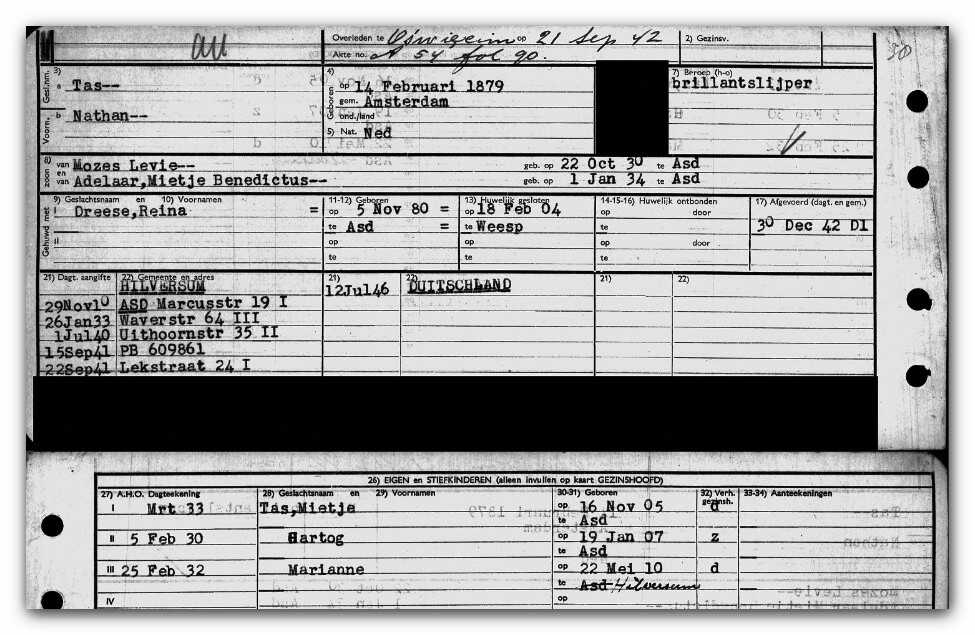 au
Overleden te Oświęcim op 21 Sep 42 2) Gezinsv.
Akte no. A 54 fol 90.
3) 4) 7) Beroep (h-o)
Gesl.nm. a Tas-- Geboren op 14 Februari 1879 brillantslijper
gem. Amsterdam
Voorn. b Nathan-- ond./land
5) Nat. Ned
8) zoon van Mozes Levie-- geb. op 22 Oct 30 te Asd
en van Adelaar,Mietje Benedictus-- geb. op 1 Jan 34 te Asd
9) Geslachtsnaam en 10) Voornamen 11-12) Geboren 13) Huwelijk gesloten 14-15-16) Huwelijk ontbonden 17) Afgevoerd (dagt. en gem.)
Gehuwd met I Dreese,Reina = op 5 Nov 80 = op 18 Feb 04 op door
te Asd = te Weesp te 30 Dec 42 D1
II op op op door
te te te
21) Dagt. aangifte 22) Gemeente en adres 21) 22) 21) 22)
HILVERSUM 12Jul46 DUITSCHLAND
29Nov10 ASD Marcusstr 19 I
26Jan33 Waverstr 64 III
1Jul40 Uithoornstr 35 II
15Sep41 PB 609861
22Sep41 Lekstraat 24 I
26) EIGEN en STIEFKINDEREN (alleen invullen op kaart GEZINSHOOFD)
27) A.H.O. Dagteekening 28) Geslachtsnaam en 29) Voornamen 30-31) Geboren 32) Verh. gezinsh. 33-34) Aanteekeningen
I Mrt 33 Tas,Mietje op 16 Nov 05 d
te Asd
II 5 Feb 30 Hartog op 19 Jan 07 z
te Asd
III 25 Feb 32 Marianne op 22 Mei 10 d
te Asd Hilversum
IV op